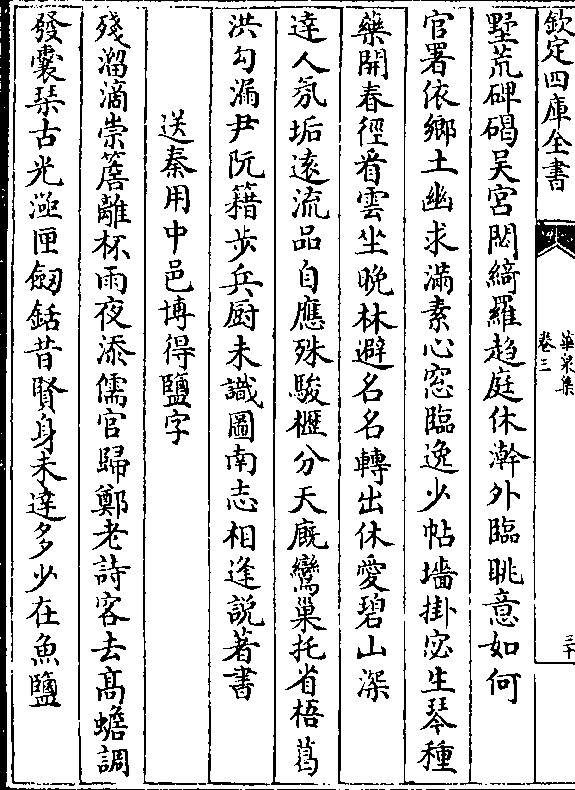 欽定四庫全書
華泉集
卷三
三十
墅荒碑碣吴宫閟綺羅趨庭休澣外臨眺意如何
官署依鄉土幽求滿素心窓臨逸少帖墻掛宓生琴種
藥開春徑看雲坐晚林避名名轉出休愛碧山深
達人氛垢遠流品自應殊駿櫪分天厩鸞巢托省梧葛
洪勾漏尹阮籍步兵厨未識圖南志相逢説著書
送秦用中邑博得鹽字
殘溜滴崇簷離杯雨夜添儒官歸鄭老詩客去高蟾調
發囊琴古光𤁋匣劔銛昔賢身未達多少在魚鹽